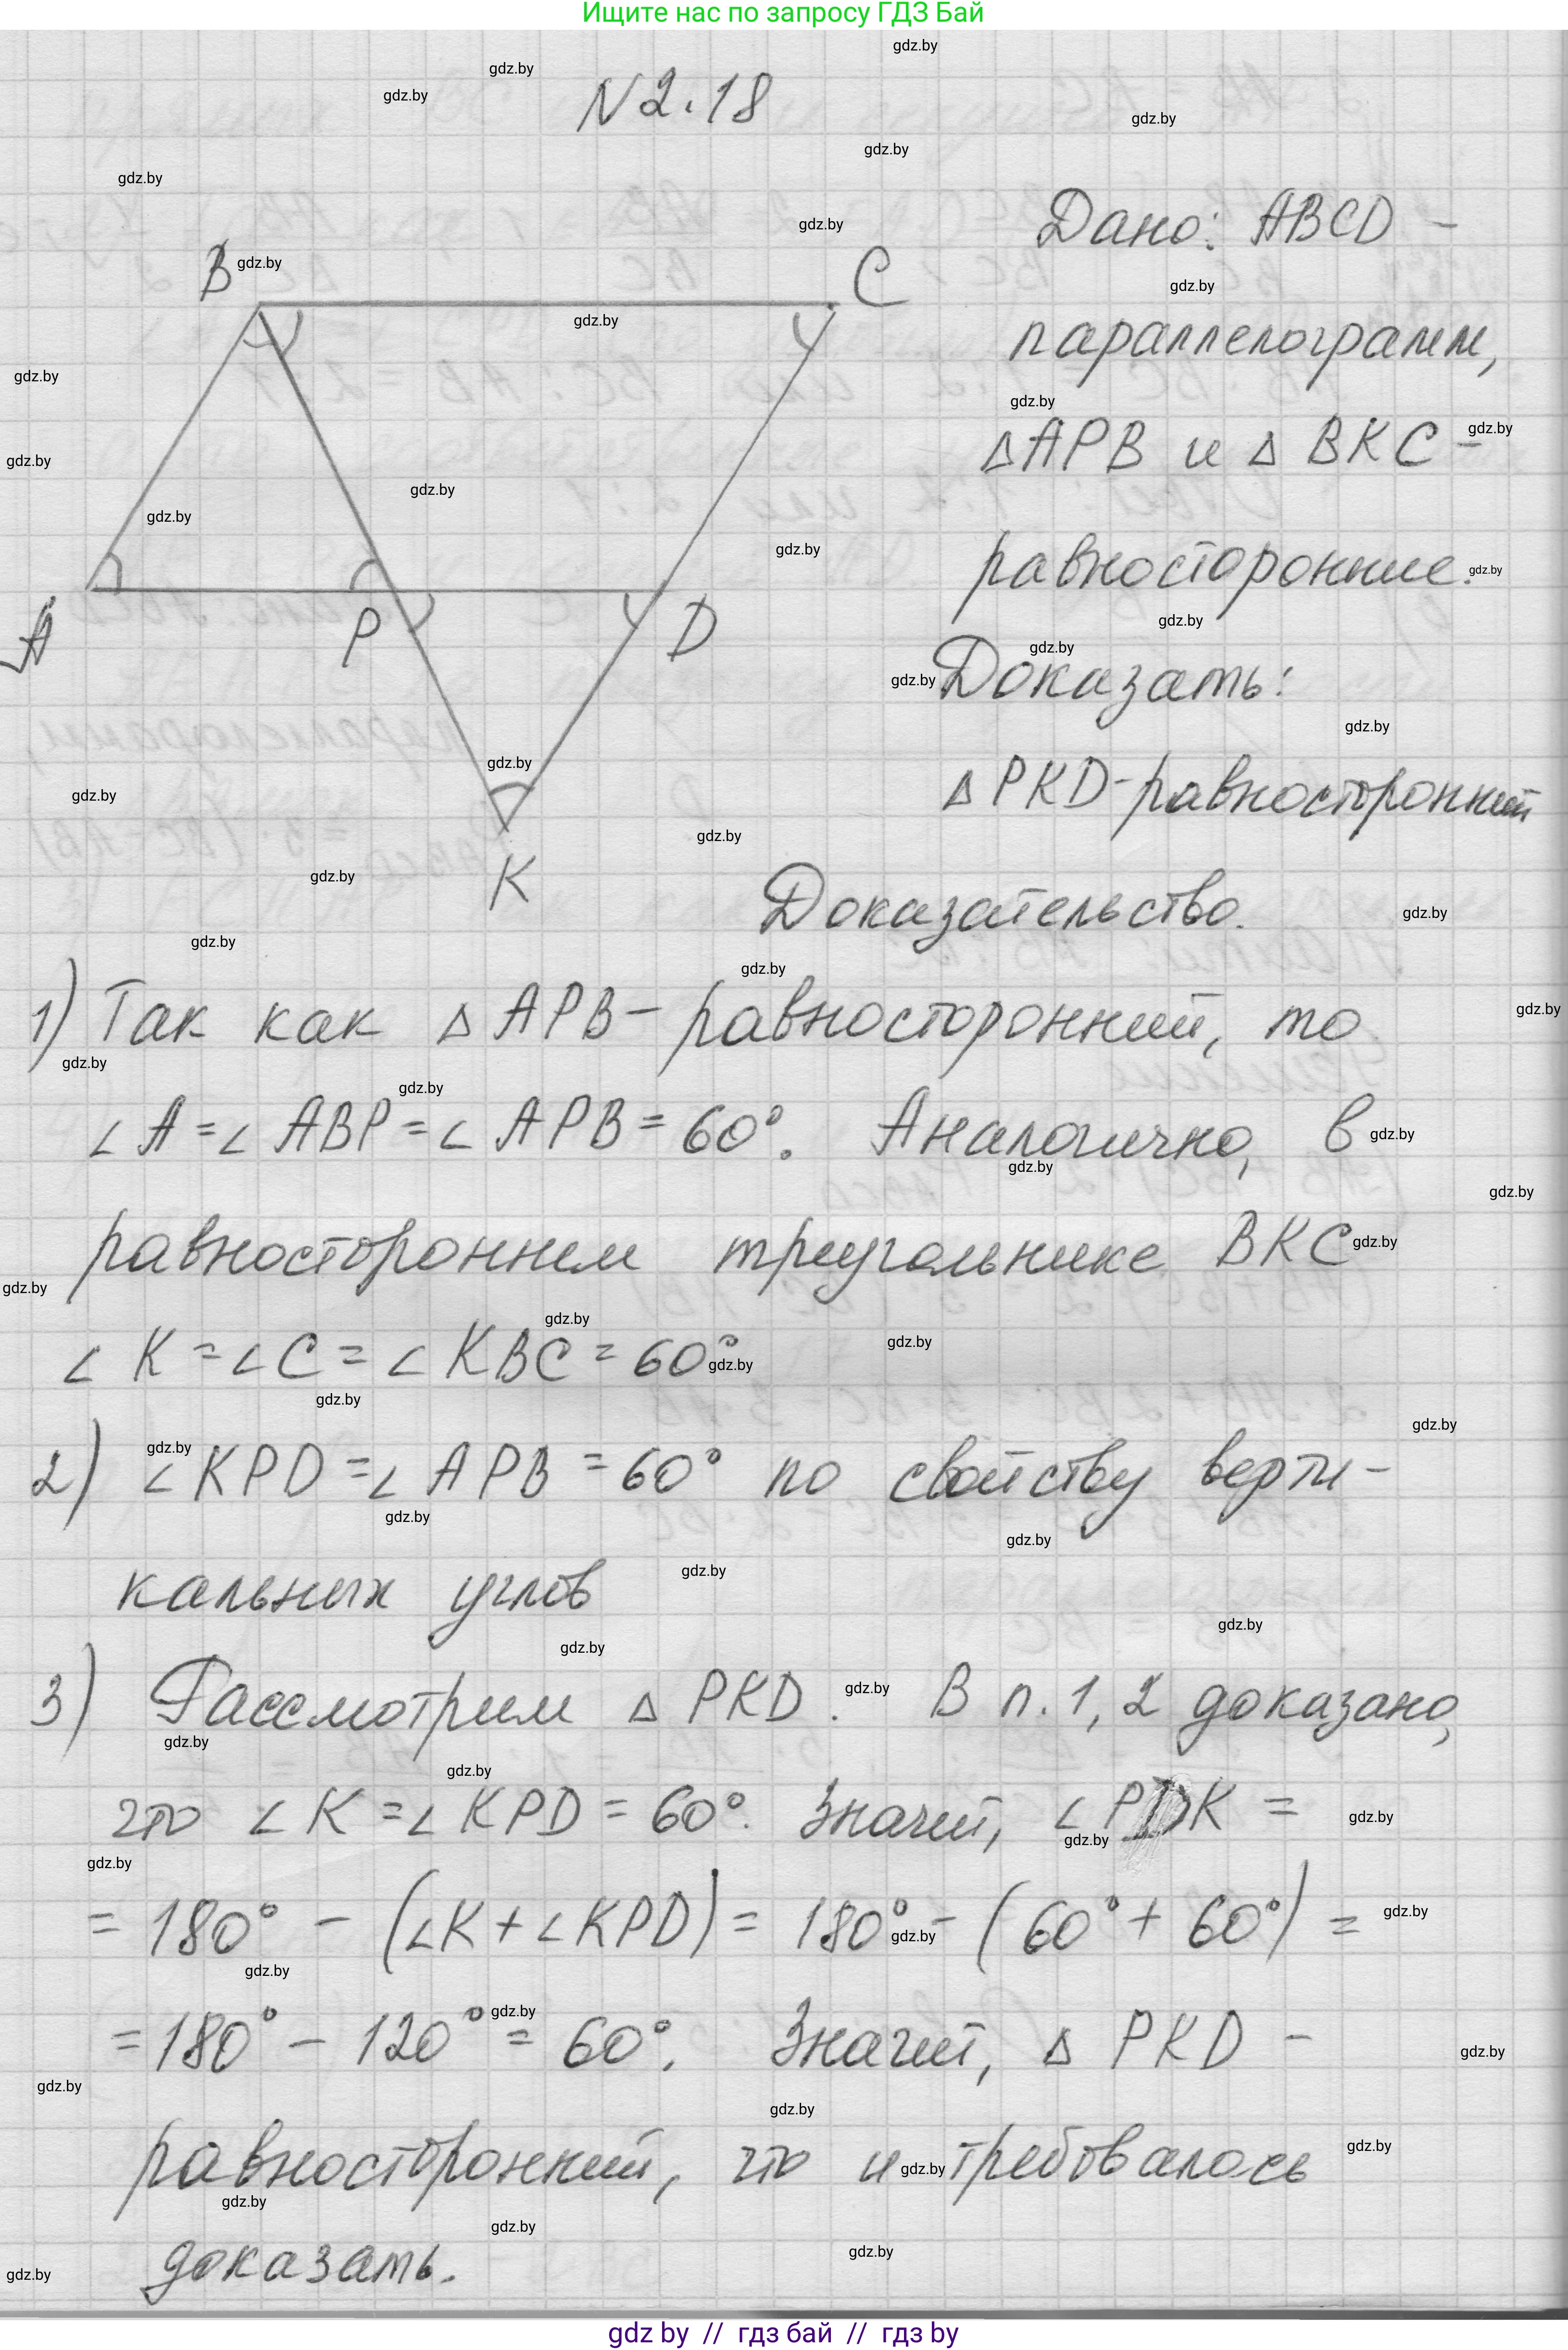 Ищите нас по запросу ГДЗ Бай
N 2.18
Дано: ABCD –
параллелограмм,
△APB и △ BKC –
равносторонние.
Доказать:
△ PKD-равносторонний
B
C
A
P
D
K
Доказательство.
1) Так как △ APB – равносторонний, то
∠ A = ∠ ABP = ∠ APB = 60°. Аналогично, в
равностороннем треугольнике BKC
∠ K = ∠ C = ∠ KBC = 60°
2) ∠ KPD = ∠ APB = 60° по свойству верти-
кальных углов
3) Рассмотрим △ PKD. В п. 1, 2 доказано,
что ∠ K = ∠ KPD = 60°. Значит, ∠ PDK =
= 180° – (∠K + ∠KPD) = 180° – (60° + 60°) =
= 180° – 120° = 60°. Значит, △ PKD –
равносторонний, что и требовалось
доказать.
gdz by // гдз бай // гдз by